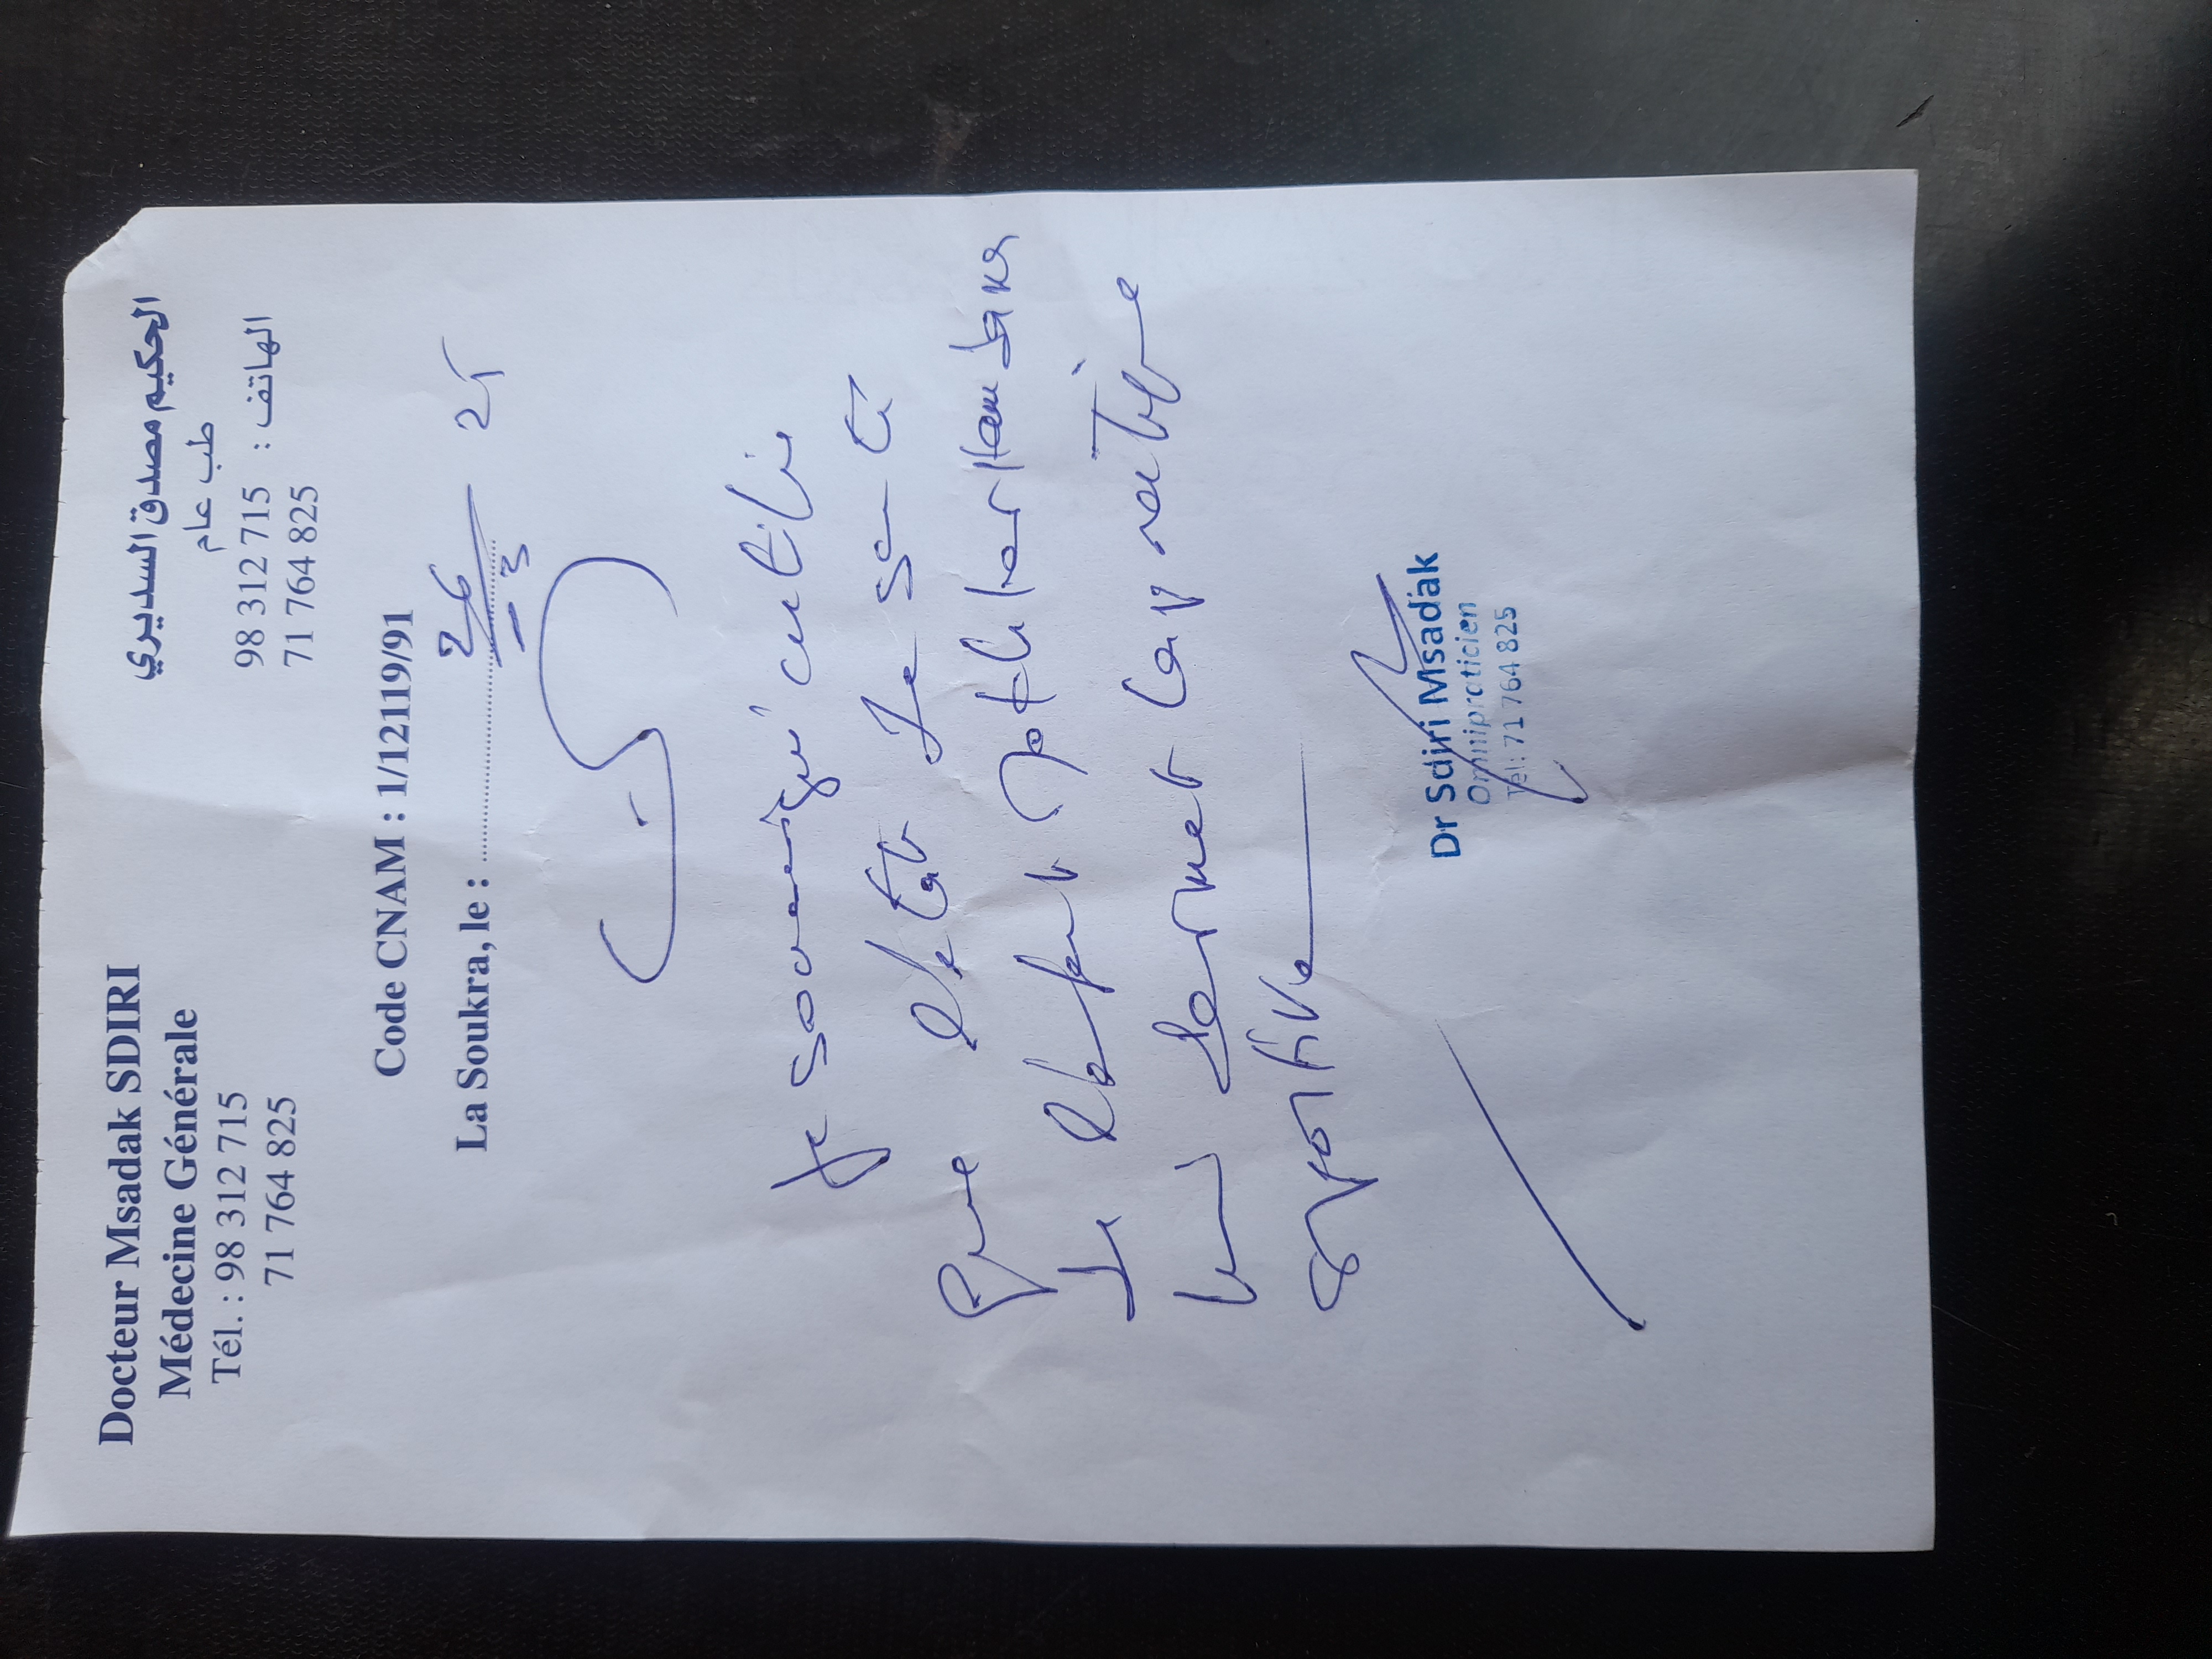 Docteur Msadak SDIRI
Médecine Générale
Tél. : 98 312 715
71 764 825
الحكيم مصدق السديري
طب عام
الهاتف : 98 312 715
71 764 825
Code CNAM : 1/12119/91
La Soukra, le : 26 3 21
Je soussigné certifie
que l'état de santé
de l'enfant
lui permet la pratique
sportive
Dr Sdiri Msadak
Omnipraticien
Tél: 71 764 825